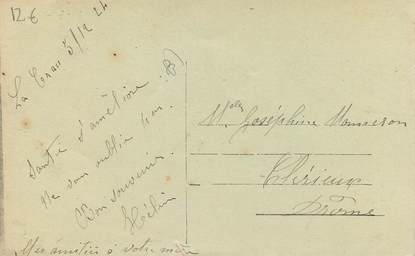 12 €
La Crau 3/12 24
Santé s'améliore.
Ne vous oublie pas.
Bon souvenir.
Hélène
Mes amitiés à votre mère
Mlle Joséphine
Clérieux
Drôme